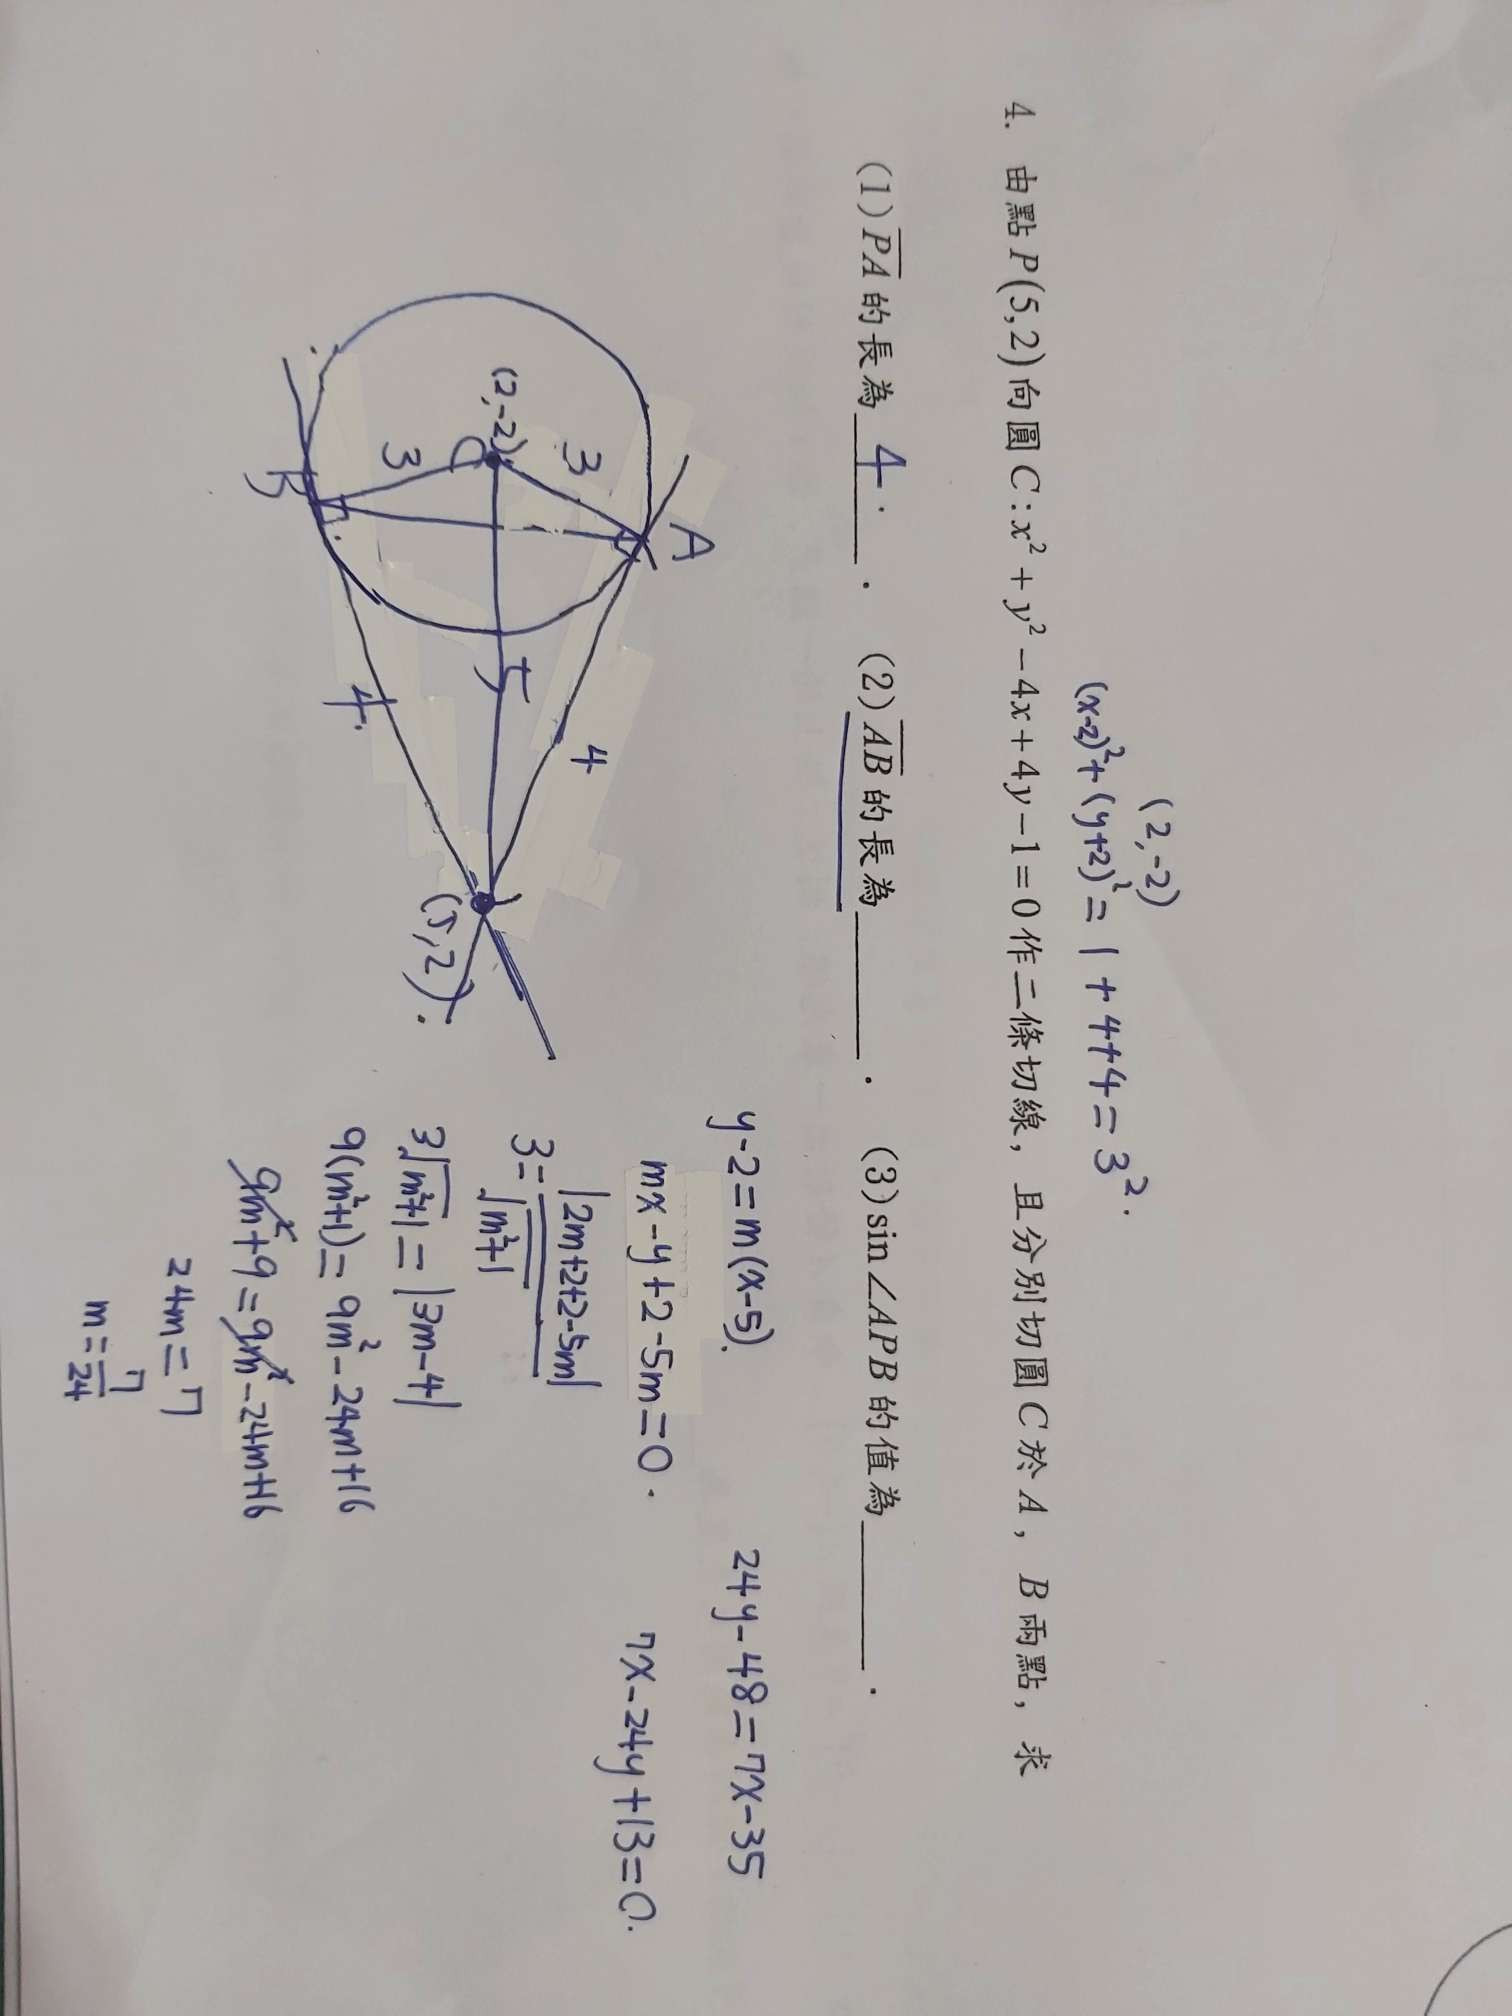 (2,-2)
(x-2)²+(y+2)²=1+4+4=3².
4. 由點P(5,2)向圓C:x²+y²-4x+4y-1=0作二條切線，且分別切圓C於A，B兩點，求
(1)PA的長為 4. . (2)AB的長為______. (3)sin∠APB的值為______.
A
3
(2,-2)
C
3
B
5
4
4.
(5,2).
y-2=m(x-5).
mx-y+2-5m=0.
3=|2m+2+2-5m|/√m²+1
3√m²+1=|3m-4|
9(m²+1)=9m²-24m+16
9m²+9=9m²-24m+16
24m=7
m=7/24
24y-48=7x-35
7x-24y+13=0.